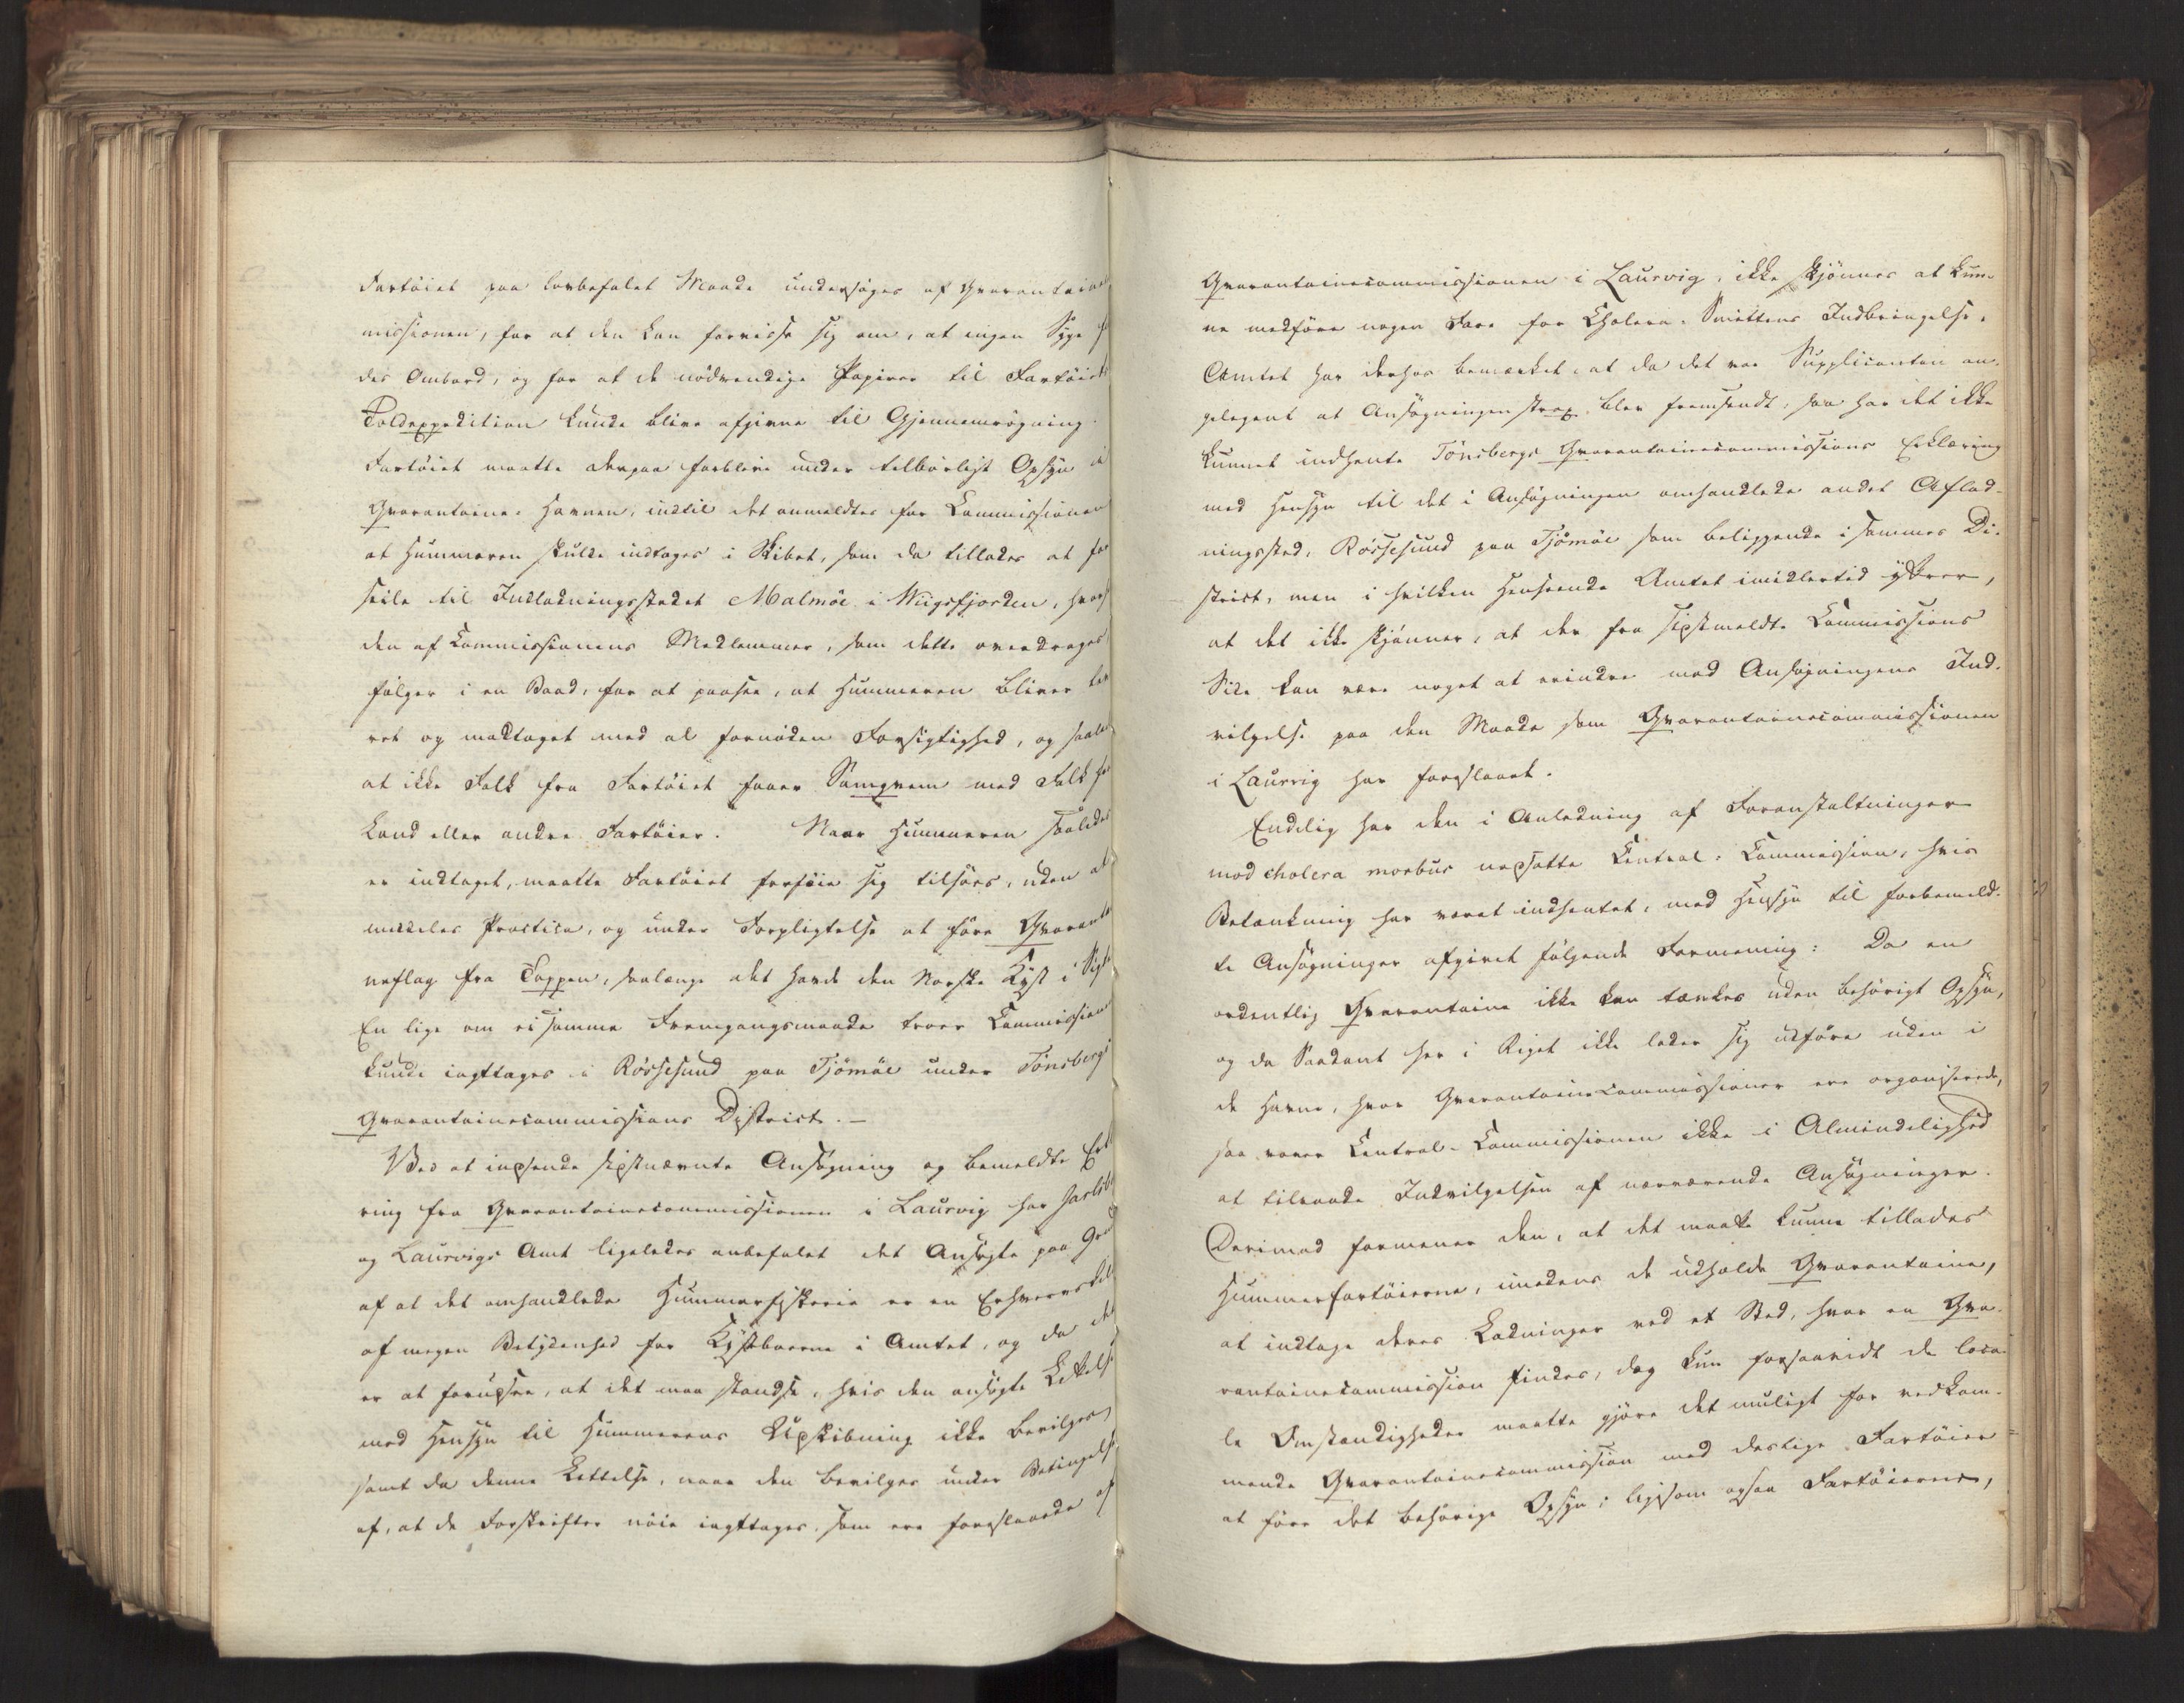 Fartöiet paa lovbefalet Maade undersöges af Qvarantaine
missionen, for at den kan forvisse sig om, at ingen Syge
des Ombord, og for at de nödvendige Papirer til Fartöiets
Toldexpedition kunde blive afgivne til Gjennemrögning.
Fartöiet maatte derpaa forblive under tilbörligt Opsyn i
Qvarantaine-Havnen, indtil det anmeldtes for Commissionen
at Hummeren skulde indtages i Skibet, som da tillodes at
seile til Indladningsstedet Malmöe i Wiigsfjorden, hvor
den af Commissionens Medlemmer, som dette overdroges
fölger i en Baad, for at paasee, at Hummeren bliver
ret og modtaget med al fornöden Forsigtighed, og saaled
at ikke Folk fra Fartöiet faaer Samqvem med Folk fra
Land eller andre Fartöier. Naar Hummeren saaledes
er indtaget, maatte Fartöiet forföie sig tilsöes, uden at
meddeles Practica, og under Forpligtelse at före Qvarantai
neflag fra Toppen, saalænge det havde den Norske Kyst i Sigte
En lige om ei samme Fremgangsmaade troer Commissionen
kunde iagttages i Rössesund paa Tjömöe under Tönsbergs
Qvarantainecommissions District. –
Ved at indsende sidstnævnte Ansögning og bemeldte Erk
ring fra Qvarantainecommissionen i Laurvig har Jarlsb
og Laurvigs Amt ligeledes anbefalet det Ansögte paa Grund
af at det omhandlede Hummerfiskerie er en Erhvervskilde
af megen Betydenhed for Kystboerne i Amtet, og da det
er at forudsee, at det maa standse, hvis den ansögte Lettelse
med Hensyn til Hummerens Udskibning ikke bevilges,
samt da denne Lettelse, naar den bevilges under Betingelse
af, at de Forskrifter nöie iagttages, som ere foreslaaede af
Qvarantainecommissionen i Laurvig, ikke skjönnes at kun-
ne medföre nogen Fare for Cholera-Smittens Indbringelse.
Amtet har derhos bemærket, at da det var Supplicanten an-
gelegent at Ansögningen strax blev fremsendt, saa har det ikke
kunnet indhente Tönsbergs Qvarantainecommissions Erklæring
med Hensyn til det i Ansögningen omhandlede andet Aflad-
ningssted, Rössesund paa Tjömöe som beliggende i sammes Di-
strict, men i hvilken Henseende Amtet imidlertid yttrer,
at det ikke skjönner, at der fra sidstmeldte Commissions
Side kan være noget at erindre mod Ansögningens Ind-
vilgelse paa den Maade som Qvarantainecommissionen
i Laurvig har foreslaaet.
Endelig har den i Anledning af Foranstaltninger
mod cholera morbus nedsatte Central-Commission, hvis
Betænkning har været indhentet, med Hensyn til forbemeld-
te Ansögninger afgivet fölgende Formening: Da en
ordentlig Qvarantaine ikke kan tænkes uden behörigt Opsyn,
og da Saadant her i Riget ikke lader sig udföre uden i
de Havne, hvor Qvarantainecommissioner ere organiserede,
saa vover Central-Commissionen ikke i Almindelighed
at tilraade Indvilgelsen af nærværende Ansögninger.
Derimod formener den, at det maatte kunne tillades
Hummerfartöierne, imedens de udholde Qvarantaine,
at indtage deres Ladninger ved et Sted, hvor en Qva-
rantainecommission findes, dog kun forsaavidt de loca-
le Omstændigheder maatte gjöre det muligt for vedkom-
mende Qvarantainecommission med deslige Fartöier
at före det behörige Opsyn; ligesom ogsaa Fartöierne,